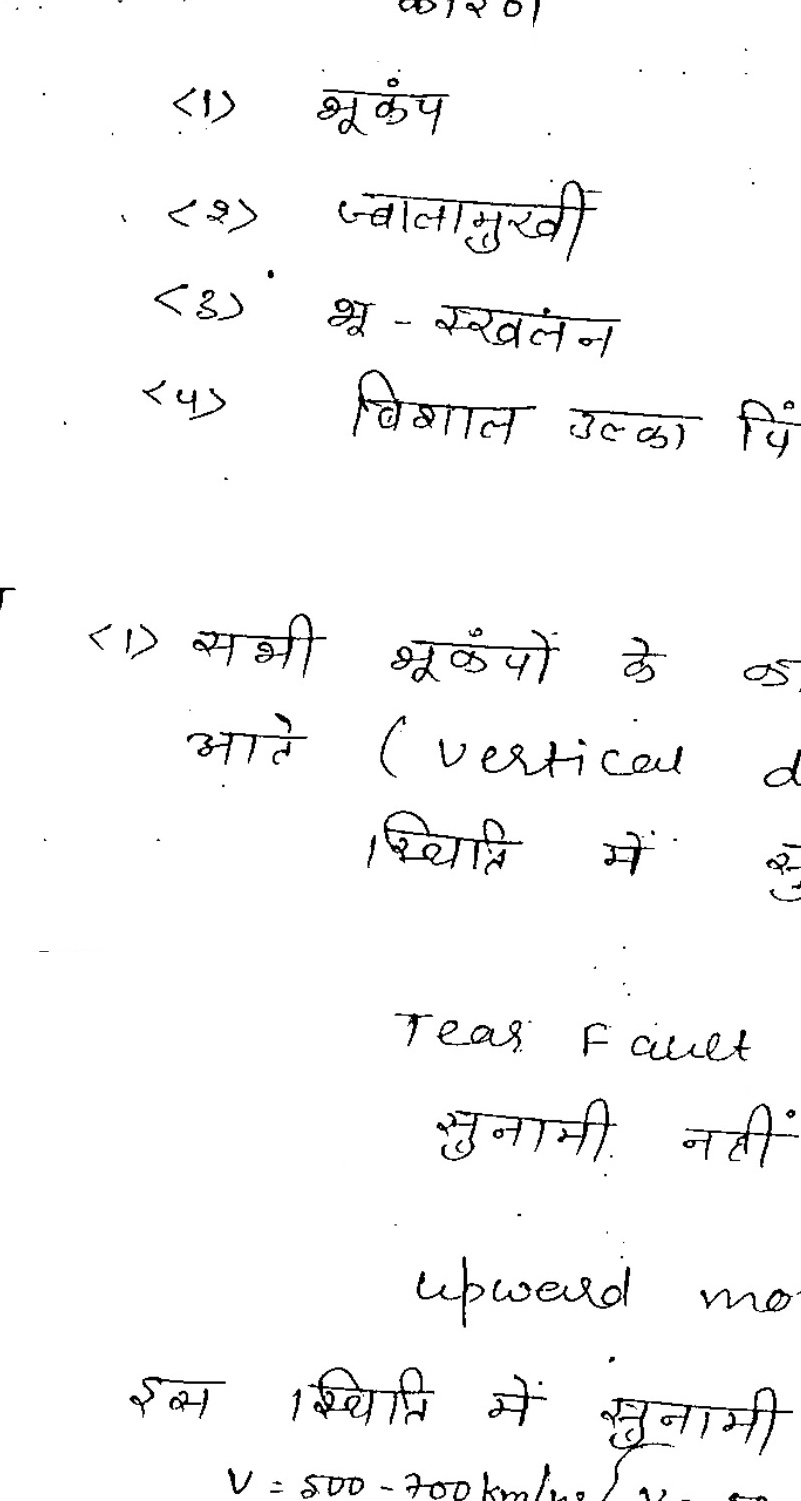 कारण
<1> भूकंप
<२> ज्वालामुखी
<3> भू - स्खलन
<4> विशाल उल्का पिं
<1> सभी भूकंपों के
आते ( vertical d
स्थिति में सु
Tear Fault
सुनामी नहीं
upward mo
इस स्थिति में सुनामी
V = 500 - 700 km/